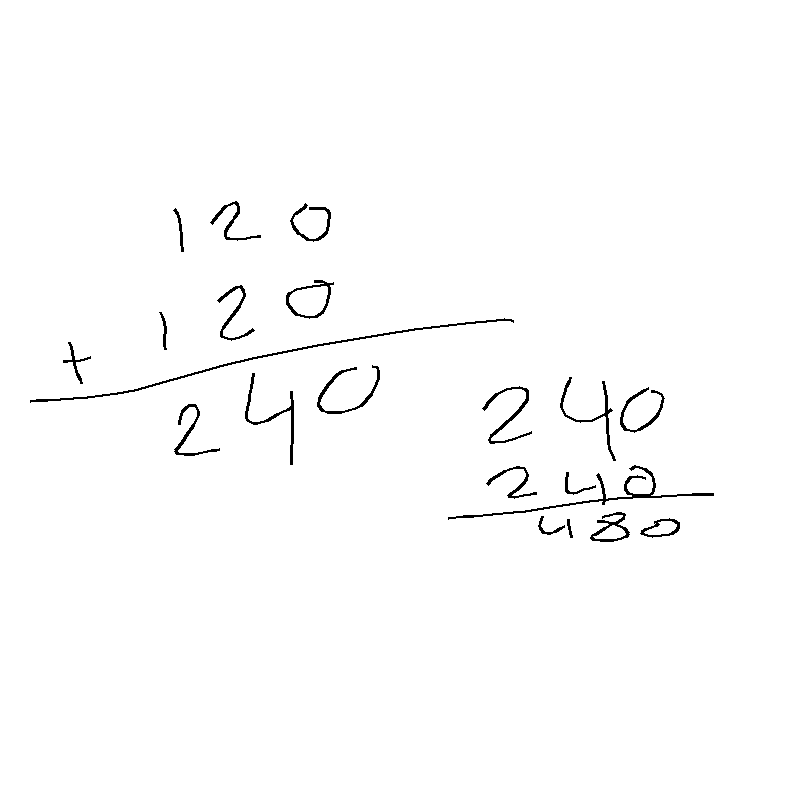 120
+ 120
240
240
240
480